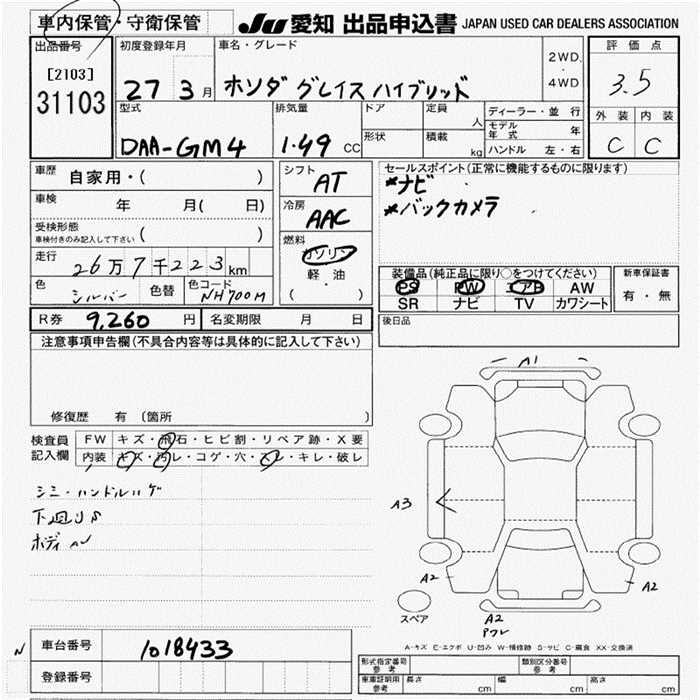 車内保管・守衛保管
JU 愛知 出品申込書 JAPAN USED CAR DEALERS ASSOCIATION
出品番号
[2103]
31103
初度登録年月
27 3 月
車名・グレード
ホンダ グレイス ハイブリッド
2WD.
・
4WD
評価点
3.5
外装 内装
C C
型式
DAA-GM4
排気量
1.49 CC
ドア
形状
定員 人
積載 kg
ディーラー・並行
モデル年式 年
ハンドル 左・右
車歴 自家用・( )
車検 年 月( 日)
受検形態
車検付きのみ記入して下さい ( )
走行 26万7千223km
色 シルバー 色替 色コード NH700M
シフト AT
冷房 AAC
燃料
ガソリン
軽・油
( )
セールスポイント(正常に機能するものに限ります)
*ナビ
*バックカメラ
装備品(純正品に限り○をつけてください)
PS PW エアB AW
SR ナビ TV カワシート
新車保証書
有・無
R券 9,260 円 名変期限 月 日
後日品
注意事項申告欄(不具合内容等は具体的に記入して下さい)
修復歴 有 (箇所 )
検査員記入欄
FW キズ・飛石・ヒビ割・リペア跡・X要
内装 キズ・汚レ・コゲ・穴・スレ・キレ・破レ
シミ・ハンドルハゲ
下廻りS
ボディ
A1
A3
A2
A2
スペア
A2
Pフレ
A-キズ E-エクボ U-凹み W-補修跡 S-サビ C-腐食 XX-交換済
N 車台番号 1018433
登録番号
型式指定番号 参考
類別区分番号 参考
車庫証明用 参考 長さ cm 幅 cm 高さ cm